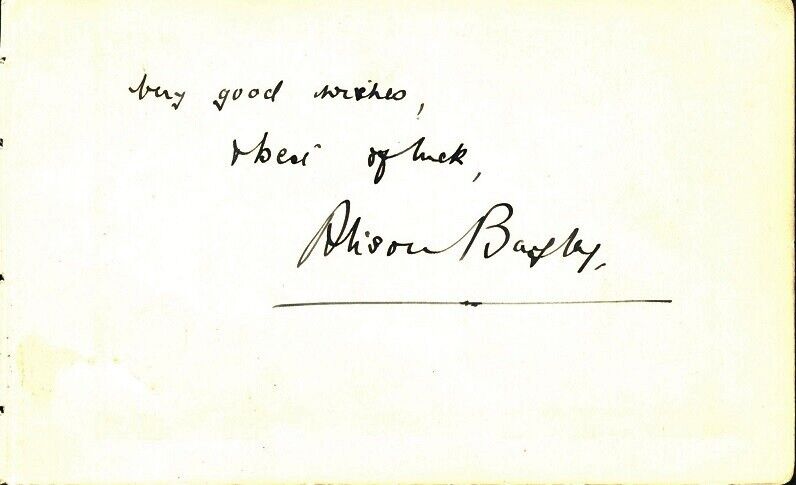 Very good wishes,
& best of luck,
Alison Bayley.